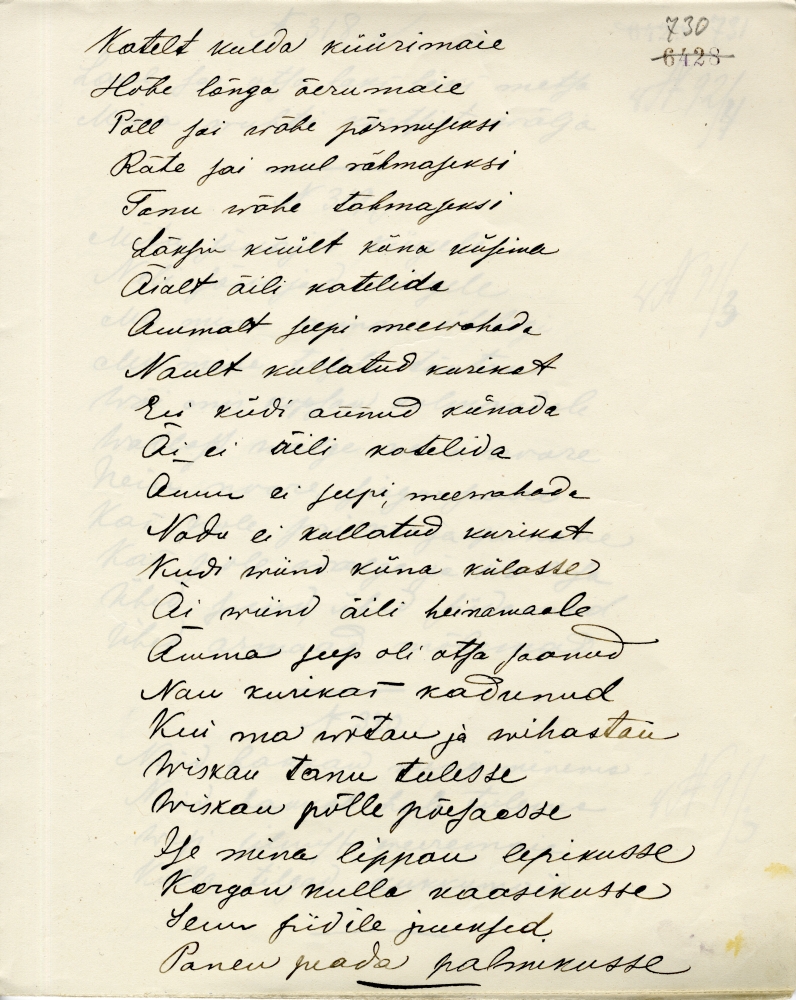 730
6428
Katelt kulda küürimaie
Hõbe lõnga äerumaie
Põll sai wähe põrmuseksi
Räte sai mul rähmaseksi
Tanu wähe tahmaseksi
Läksin küült küna küsima
Äialt äili katelida
Ämmalt seepi meewahada
Nault kullatud kurikat
Eii küdi annud künada
Äi ei äili katelida
Ämm ei seepi, meewahada
Nadu ei kullatud kurikat
Kudi wiind küna külasse
Äi wiind äili heinamaale
Ämma seep oli otsa saanud
Nau kurikas kadunud
Kui ma wõtan ja wihastan
Wiskan tanu tulesse
Wiskan põlle põesaesse
Ise mina lippan lepikusse
Kargan kulla kaasikusse
Seun siidile juuksed
Panen peada palmikusse